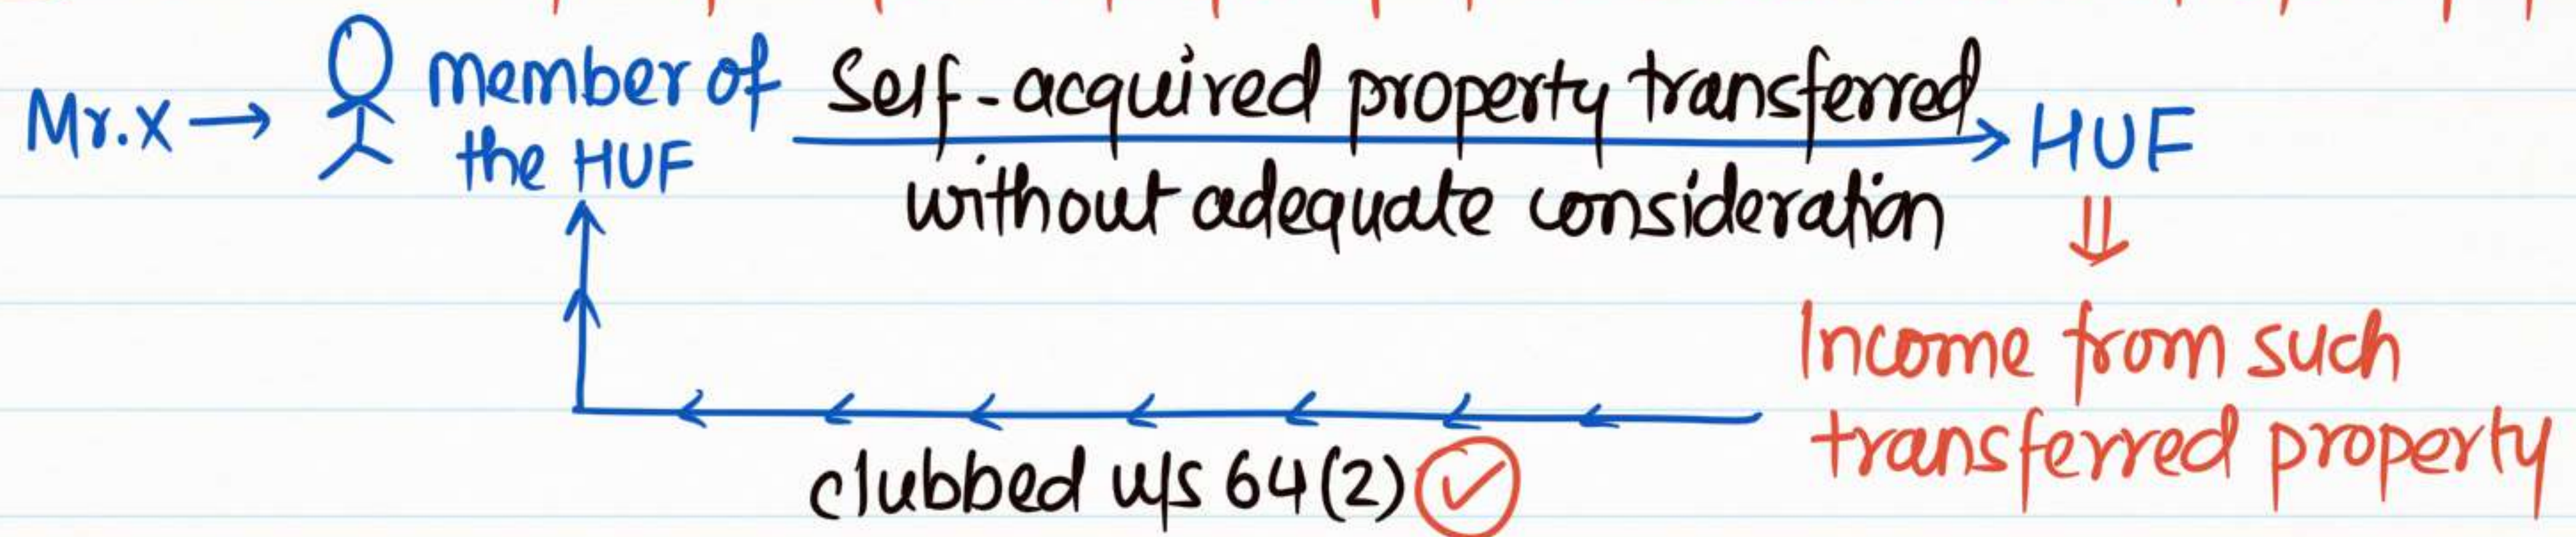 Mr.X → member of Self-acquired property transferred HUF
the HUF without adequate consideration
⇓
Income from such
transferred property
clubbed u/s 64(2) ✓